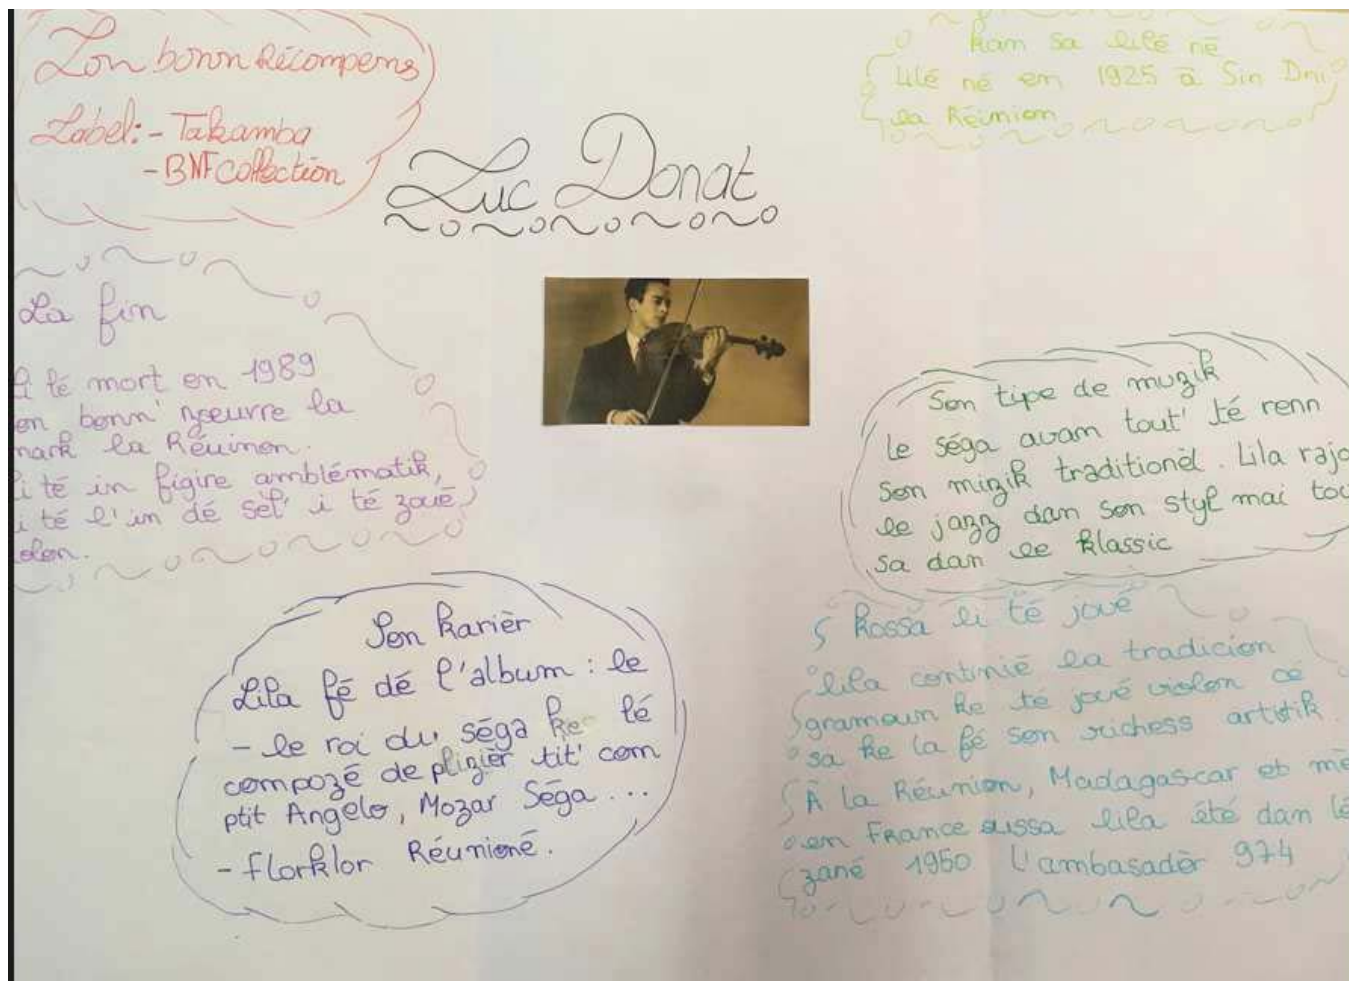 Luc Donat
Zon bonn Récompens
Label: - Takamba
- BNF collection
kan sa lilé né
Lilé né en 1925 à Sin Dni
la Réunion
La fin
té mort en 1989
en bonn' noeuvre la
mark la Réuinon.
i té in figire amblématik,
i té l'in dé sèt' i té zoué
olon.
Son tipe de muzik
le séga avan tout' té renn
son mizik traditionèl. Lila rajo
le jazz dan son styl mai tou
sa dan le klassic
Son karièr
Lila fé dé l'album : le
- le roi du séga ke lé
compozé de plizièr tit' com
ptit Angelo, Mozar Séga ...
- florklor Réunioné.
kossa li té joué
lila continié la tradicion
gramoun ke té joué violon cé
sa ke la fé son richess artistik.
À la Réunion, Madagascar et mê
en France aussa lila été dan lé
zané 1950 l'ambasadèr 974